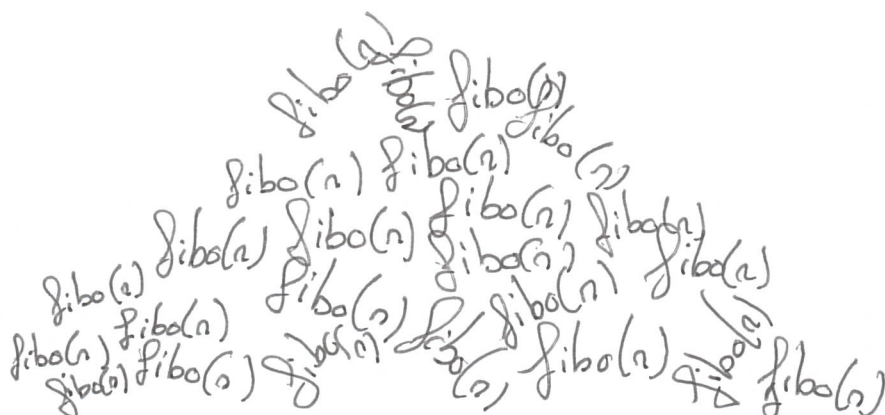 fibo(n) fibo(n) fibo(n)
fibo(n)
fibo(n) fibo(n)
fibo(n) fibo(n)
fibo(n) fibo(n)
fibo(n) fibo(n) fibo(n)
fibo(n) fibo(n) fibo(n)
fibo(n) fibo(n) fibo(n) fibo(n)
fibo(n) fibo(n) fibo(n) fibo(n)
fibo(n) fibo(n)